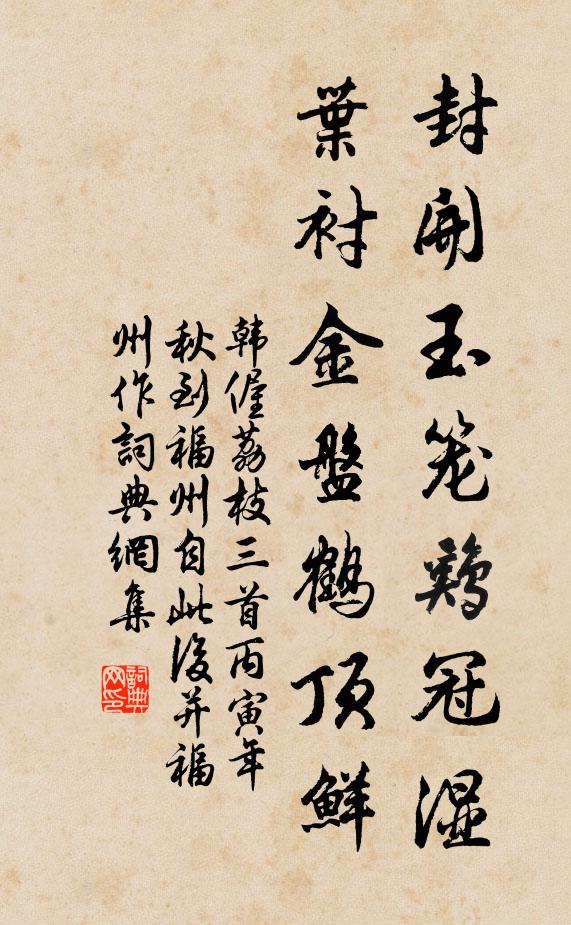 封開玉笼鷄冠湿
葉衬金盤鶴頂鮮
韩偓荔枝三首丙寅年
秋到福州自此後并福
州作詞典網集
詞典网印